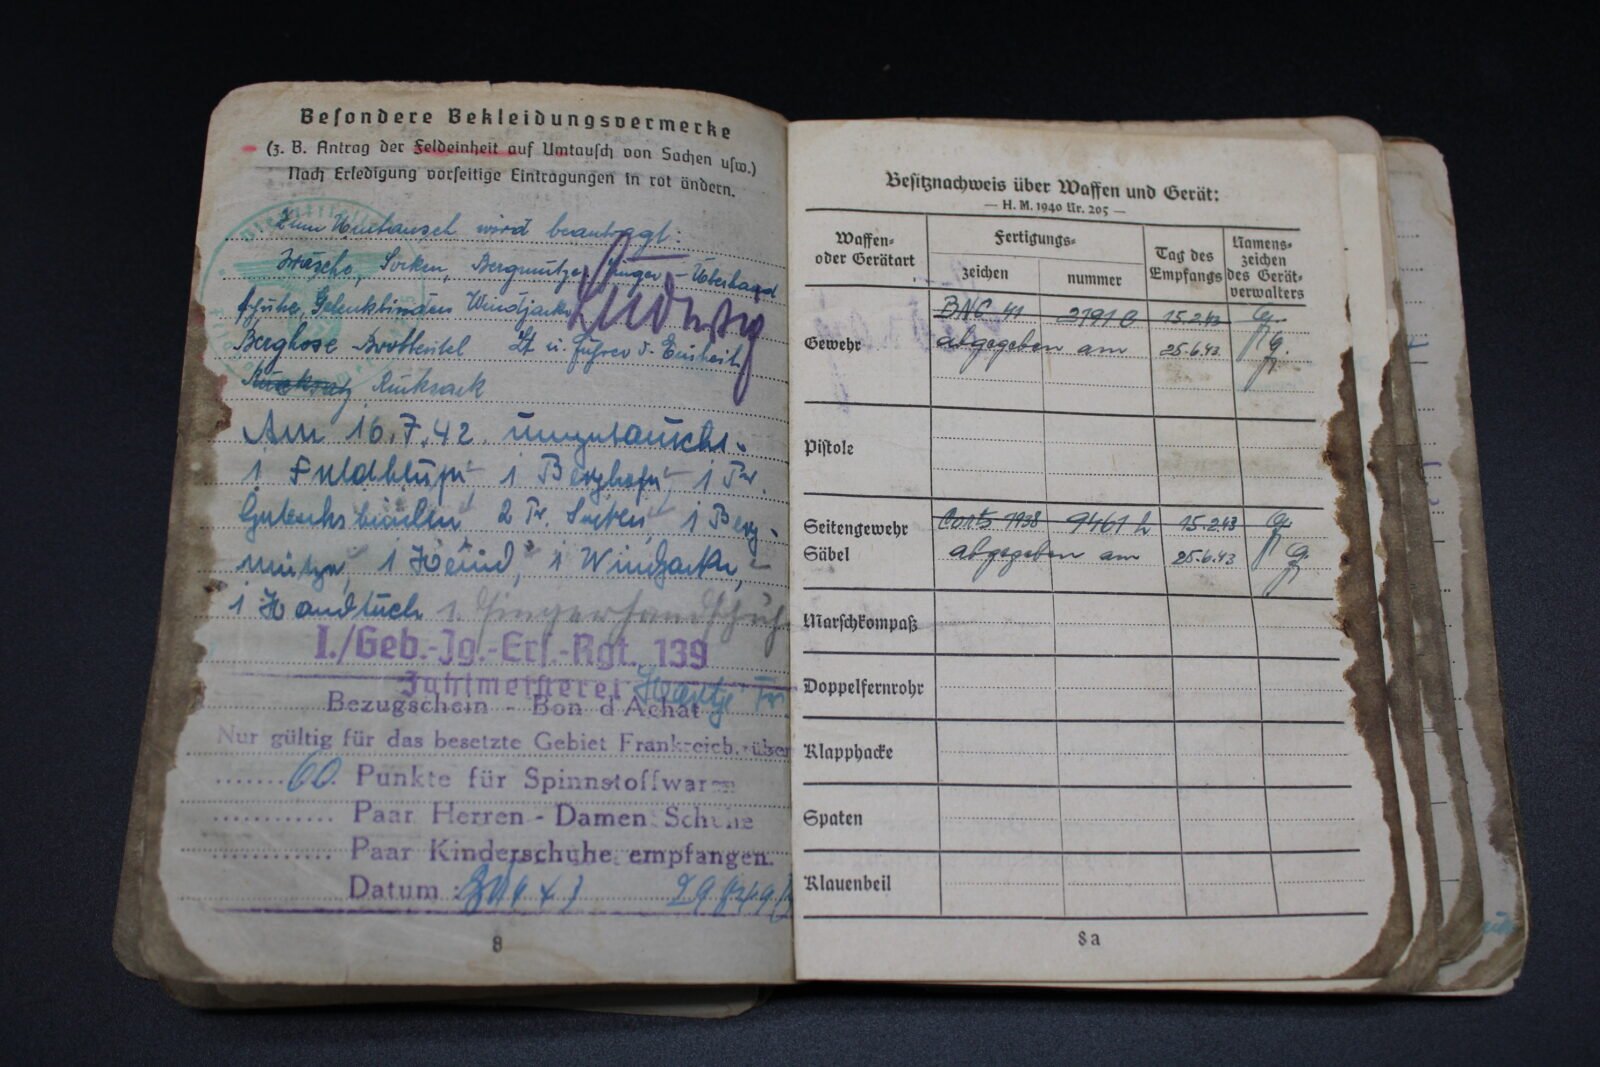 Besondere Bekleidungsvermerke
(z. B. Antrag der Feldeinheit auf Umtausch von Sachen usw.)
Nach Erledigung vorseitige Eintragungen in rot ändern.
Zum Umtausch wird beantragt:
Wäsche, Socken, Bergmütze, Finger - Überhand
schuhe, Gelenkbinden Windjacke
Ludwig
Berghose Brotbeutel Lt u. Führer d. Einheit
Rucksack
Am 16.7.42. umgetauscht.
1 Feldbluse 1 Berghose, 1 Pr.
2 Pr. Socken 1 Berg-
mütze, 1 Hemd, 1 Windjacke,
1 Handtuch 1. Fingerhandschuh
I./Geb.-Jg.-Ers.-Rgt. 139
Zahlmeisterei
Bezugschein - Bon d'Achat
Nur gültig für das besetzte Gebiet Frankreich, über
60. Punkte für Spinnstoffwaren
Paar Herren - Damen Schuhe
Paar Kinderschuhe empfangen.
Datum :
8
Besitznachweis über Waffen und Gerät:
— H. M. 1940 Nr. 205 —
Waffen- oder Gerätart
Fertigungs-
zeichen
nummer
Tag des Empfangs
Namens-zeichen des Gerät-verwalters
Gewehr
41 15.2.43
abgegeben am 25.6.43
Pistole
Seitengewehr 1938 9461 h 15.2.43
Säbel abgegeben am 25.6.43
Marschkompaß
Doppelfernrohr
Klapphacke
Spaten
Klauenbeil
8a